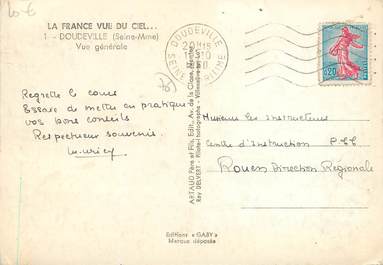 10 €
LA FRANCE VUE DU CIEL...
1 - DOUDEVILLE (Seine-Mme)
Vue générale
Regrette le cours
Essaie de mettre en pratique
vos bons conseils
Respectueux souvenir.
DOUDEVILLE
20H15
SEINE MARITIME
0,20
ARTAUD Père et Fils, Edit., Av. de la Close, Nantes
Ray DELVERT - Pilote-photographe - Villeneuve
Messieurs les Instructeurs
Centre d'Instruction P.T.T
Rouen Direction Régionale
Editions « GABY »
Marque déposée